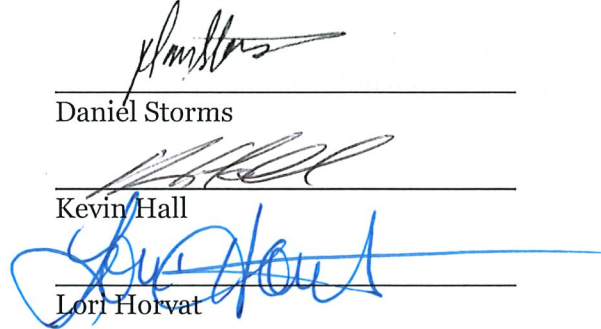 Daniel Storms
Kevin Hall
Lori Horvat